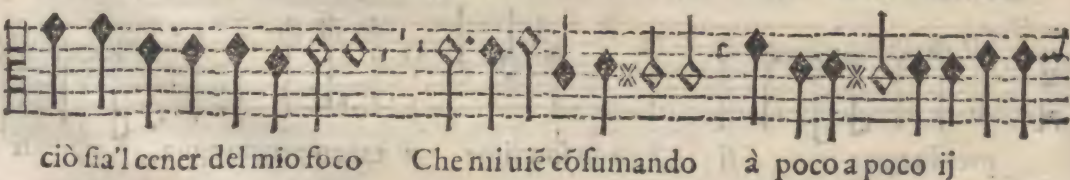 ciò sia'l cener del mio foco Che mi uiẽ cõsumando à poco a poco ij